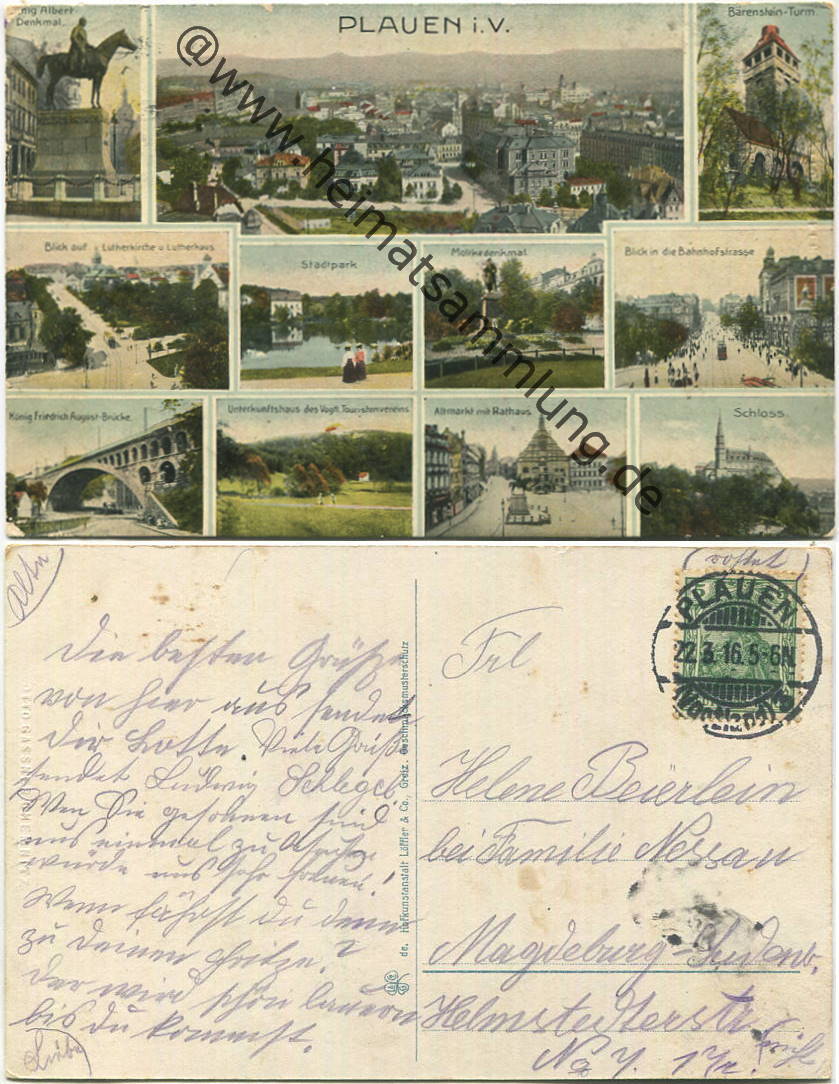 nig Albert-
Denkmal.
PLAUEN i.V.
Bärenstein-Turm.
Blick auf Lutherkirche u Lutherhaus
Stadtpark
Moltkedenkmal
Blick in die Bahnhofstrasse
König Friedrich August-Brücke.
Unterkunftshaus des Vogtl. Touristenvereins
Altmarkt mit Rathaus
Schloss.
@www.heimatsammlung.de
Die besten Grüße
von hier aus sendet
Dir Lotte. Viele Grüße
sendet Ludwig Schlegel
Wen Sie gesonnen sind
uns einmal zu
würde uns sehr freuen!
Wenn fährst du denn
zu deinen Fritze?
der wird schön lauern
bis du kommst.
de. Hofkunstanstalt Löffler & Co., Greiz. Geschmacksmusterschutz
PLAUEN
22.3.16.5-6N.
(Vogtland)
Frl
Helene Beierlein
bei Familie Nessau
Magdeburg-Sudenb.
Helmstedterstr
No 7. 1 Tr.